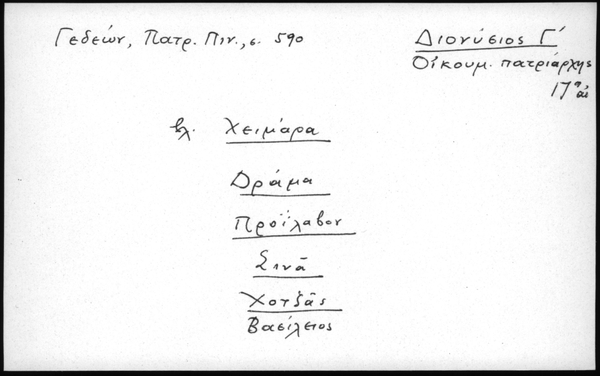 Γεδεών, Πατρ. Πιν., σ. 590
Διονύσιος Γ΄
Οἰκουμ. πατριάρχης
17ος αἰ
βλ. Χειμάρα
Δράμα
Προΐλαβον
Σινᾶ
Χοτζᾶς
Βασίλειος